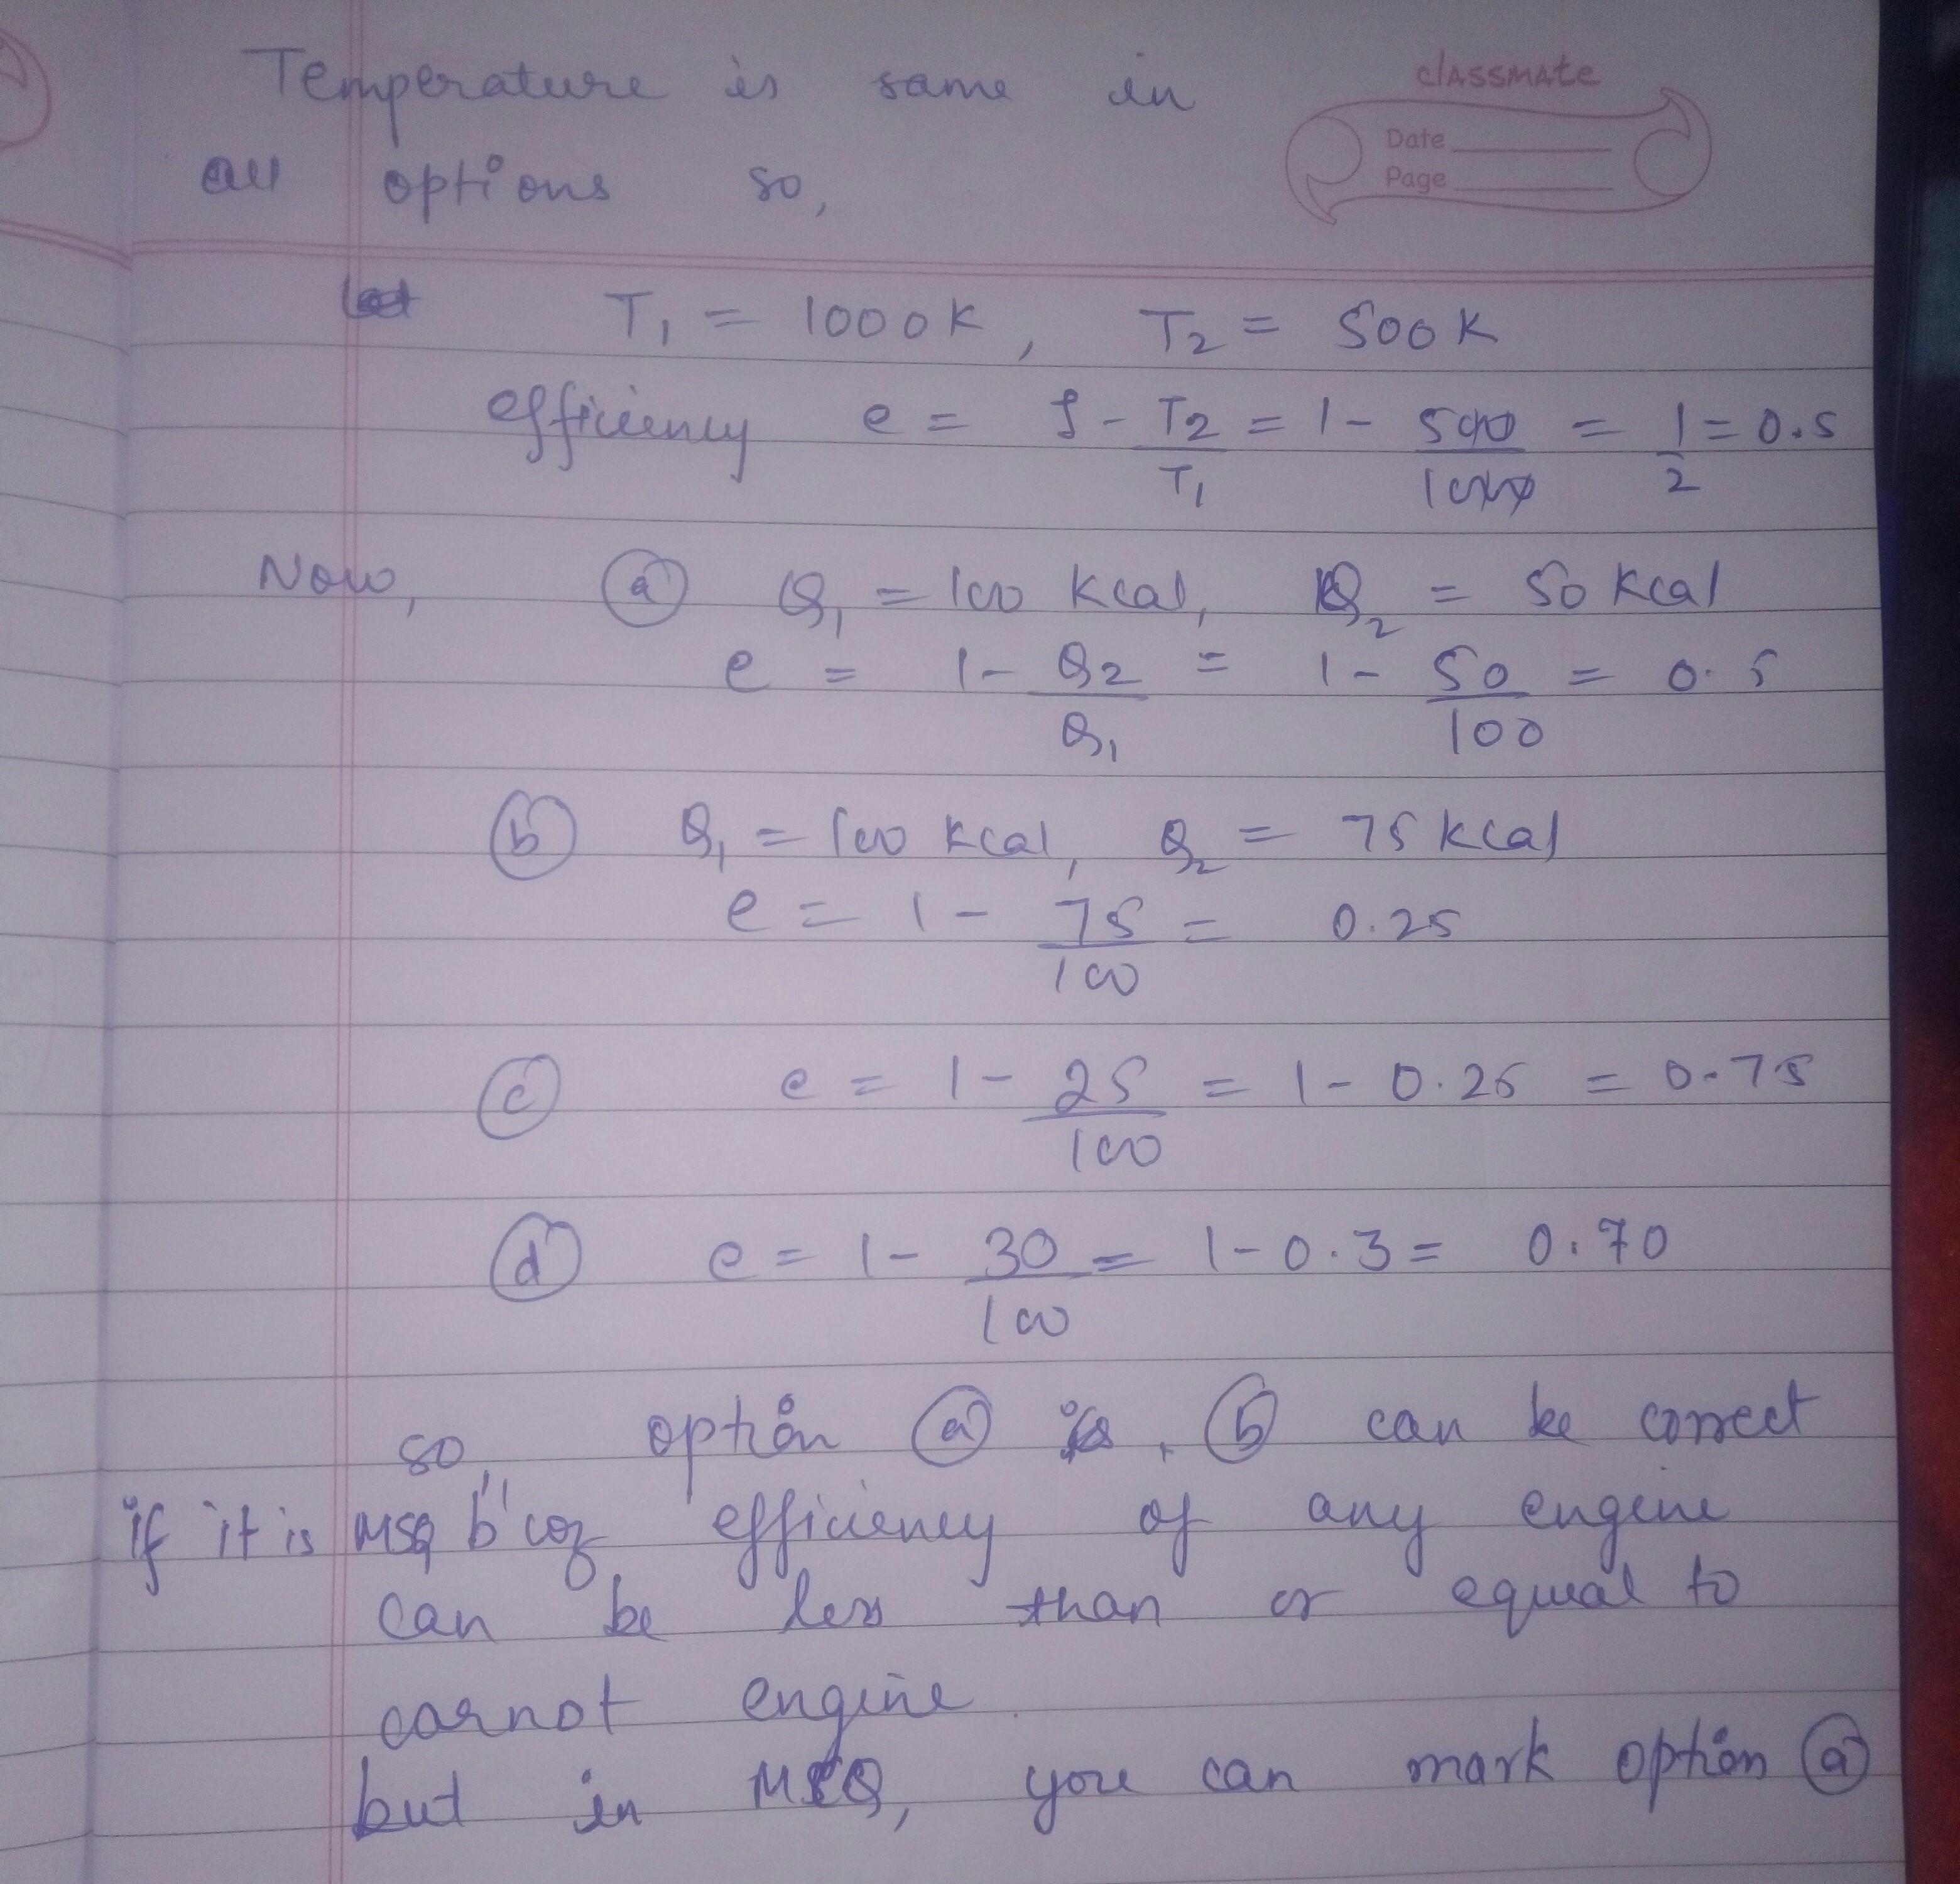 Temperature is same in
classmate
Date
Page
all options so,
T₁ = 1000K, T₂ = 500K
efficiency e = 1 - T₂/T₁ = 1 - 500/1000 = 1/2 = 0.5
Now, (a) Q₁ = 100 kcal, Q₂ = 50 kcal
e = 1 - Q₂/Q₁ = 1 - 50/100 = 0.5
(b) Q₁ = 100 kcal, Q₂ = 75 kcal
e = 1 - 75/100 = 0.25
(c) e = 1 - 25/100 = 1 - 0.25 = 0.75
(d) e = 1 - 30/100 = 1 - 0.3 = 0.70
so, option (a), (b) can be correct
if it is MSQ b'coz efficiency of any engine
can be less than or equal to
carnot engine.
but in MCQ, you can mark option (a)